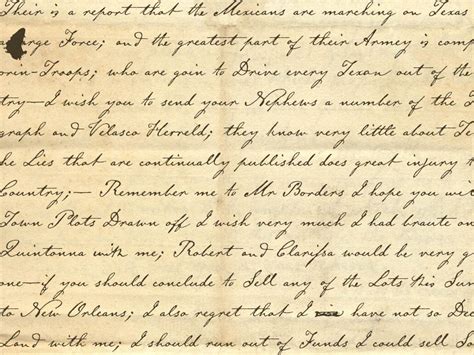 Their is a report that the Mexicans are marching on Texas
large Force; and the greatest part of their Armey is comp
orin-Troops; who are goin to Drive every Texan out of the
try— I wish you to send your Nephews a number of the T
graph and Velasco Herreld; they know very little about Te
he Lies that are continually published does great injury t
Country;— Remember me to Mr Borders I hope you wi
Town Plots Drawn off I wish very much I had braute on
Quintonna with me; Robert and Clarissa would be very g
one— if you should conclude to Sell any of the Lots this Sum
to New Orleans; I also regret that I have not so Dee
Land with me; I should run out of Funds I could sell So